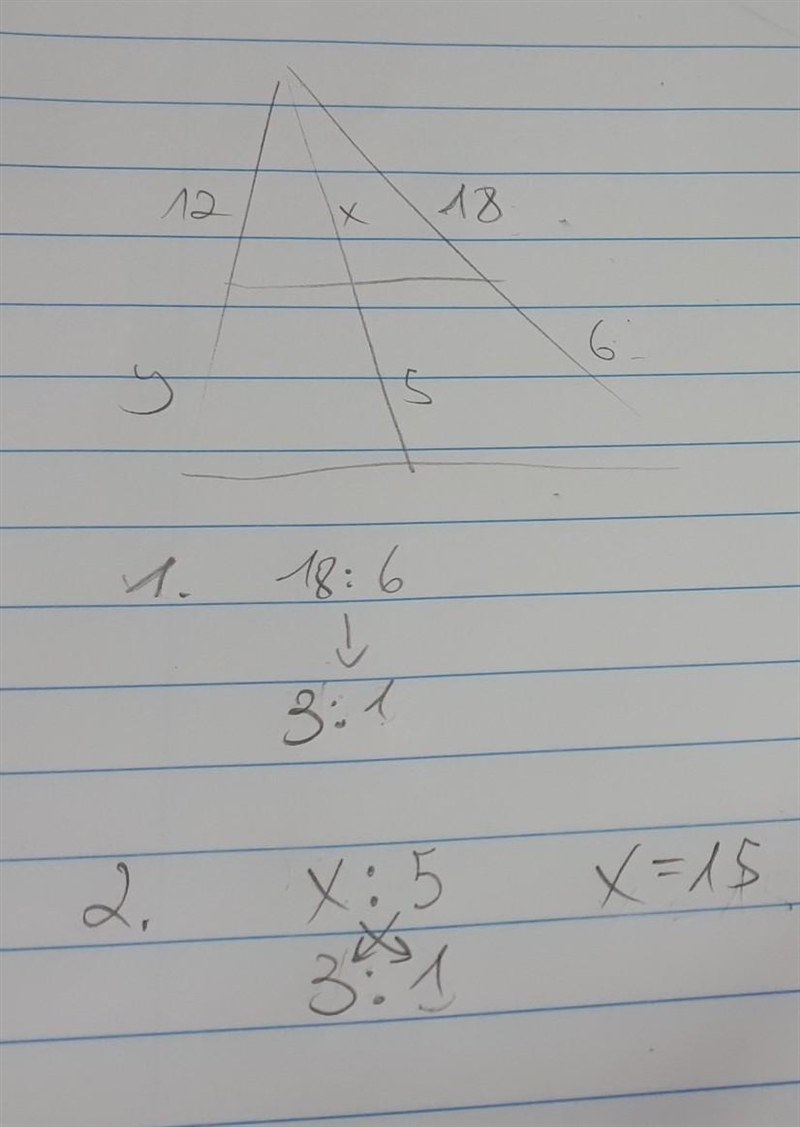 12 x 18
6
y 5
1. 18:6
3:1
2. x:5 x=15
3:1